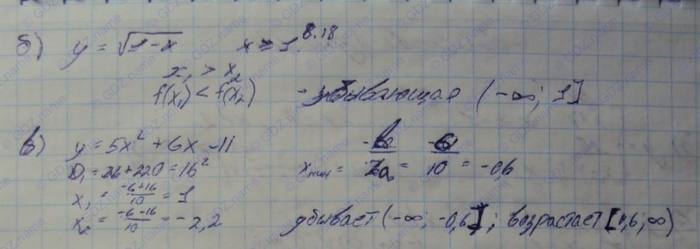 8.18
б) y = √1-x x ≥ 1
x₁ > x₂
f(x₁) < f(x₂) - убывающая (-∞; 1]
в) y = 5x² + 6x - 11
D₁ = 36 + 220 = 16²
x₁ = -6+16/10 = 1
x₂ = -6-16/10 = -2,2
xмин = -b/2a = -6/10 = -0,6
убывает (-∞; -0,6]; возрастает [-0,6; ∞)